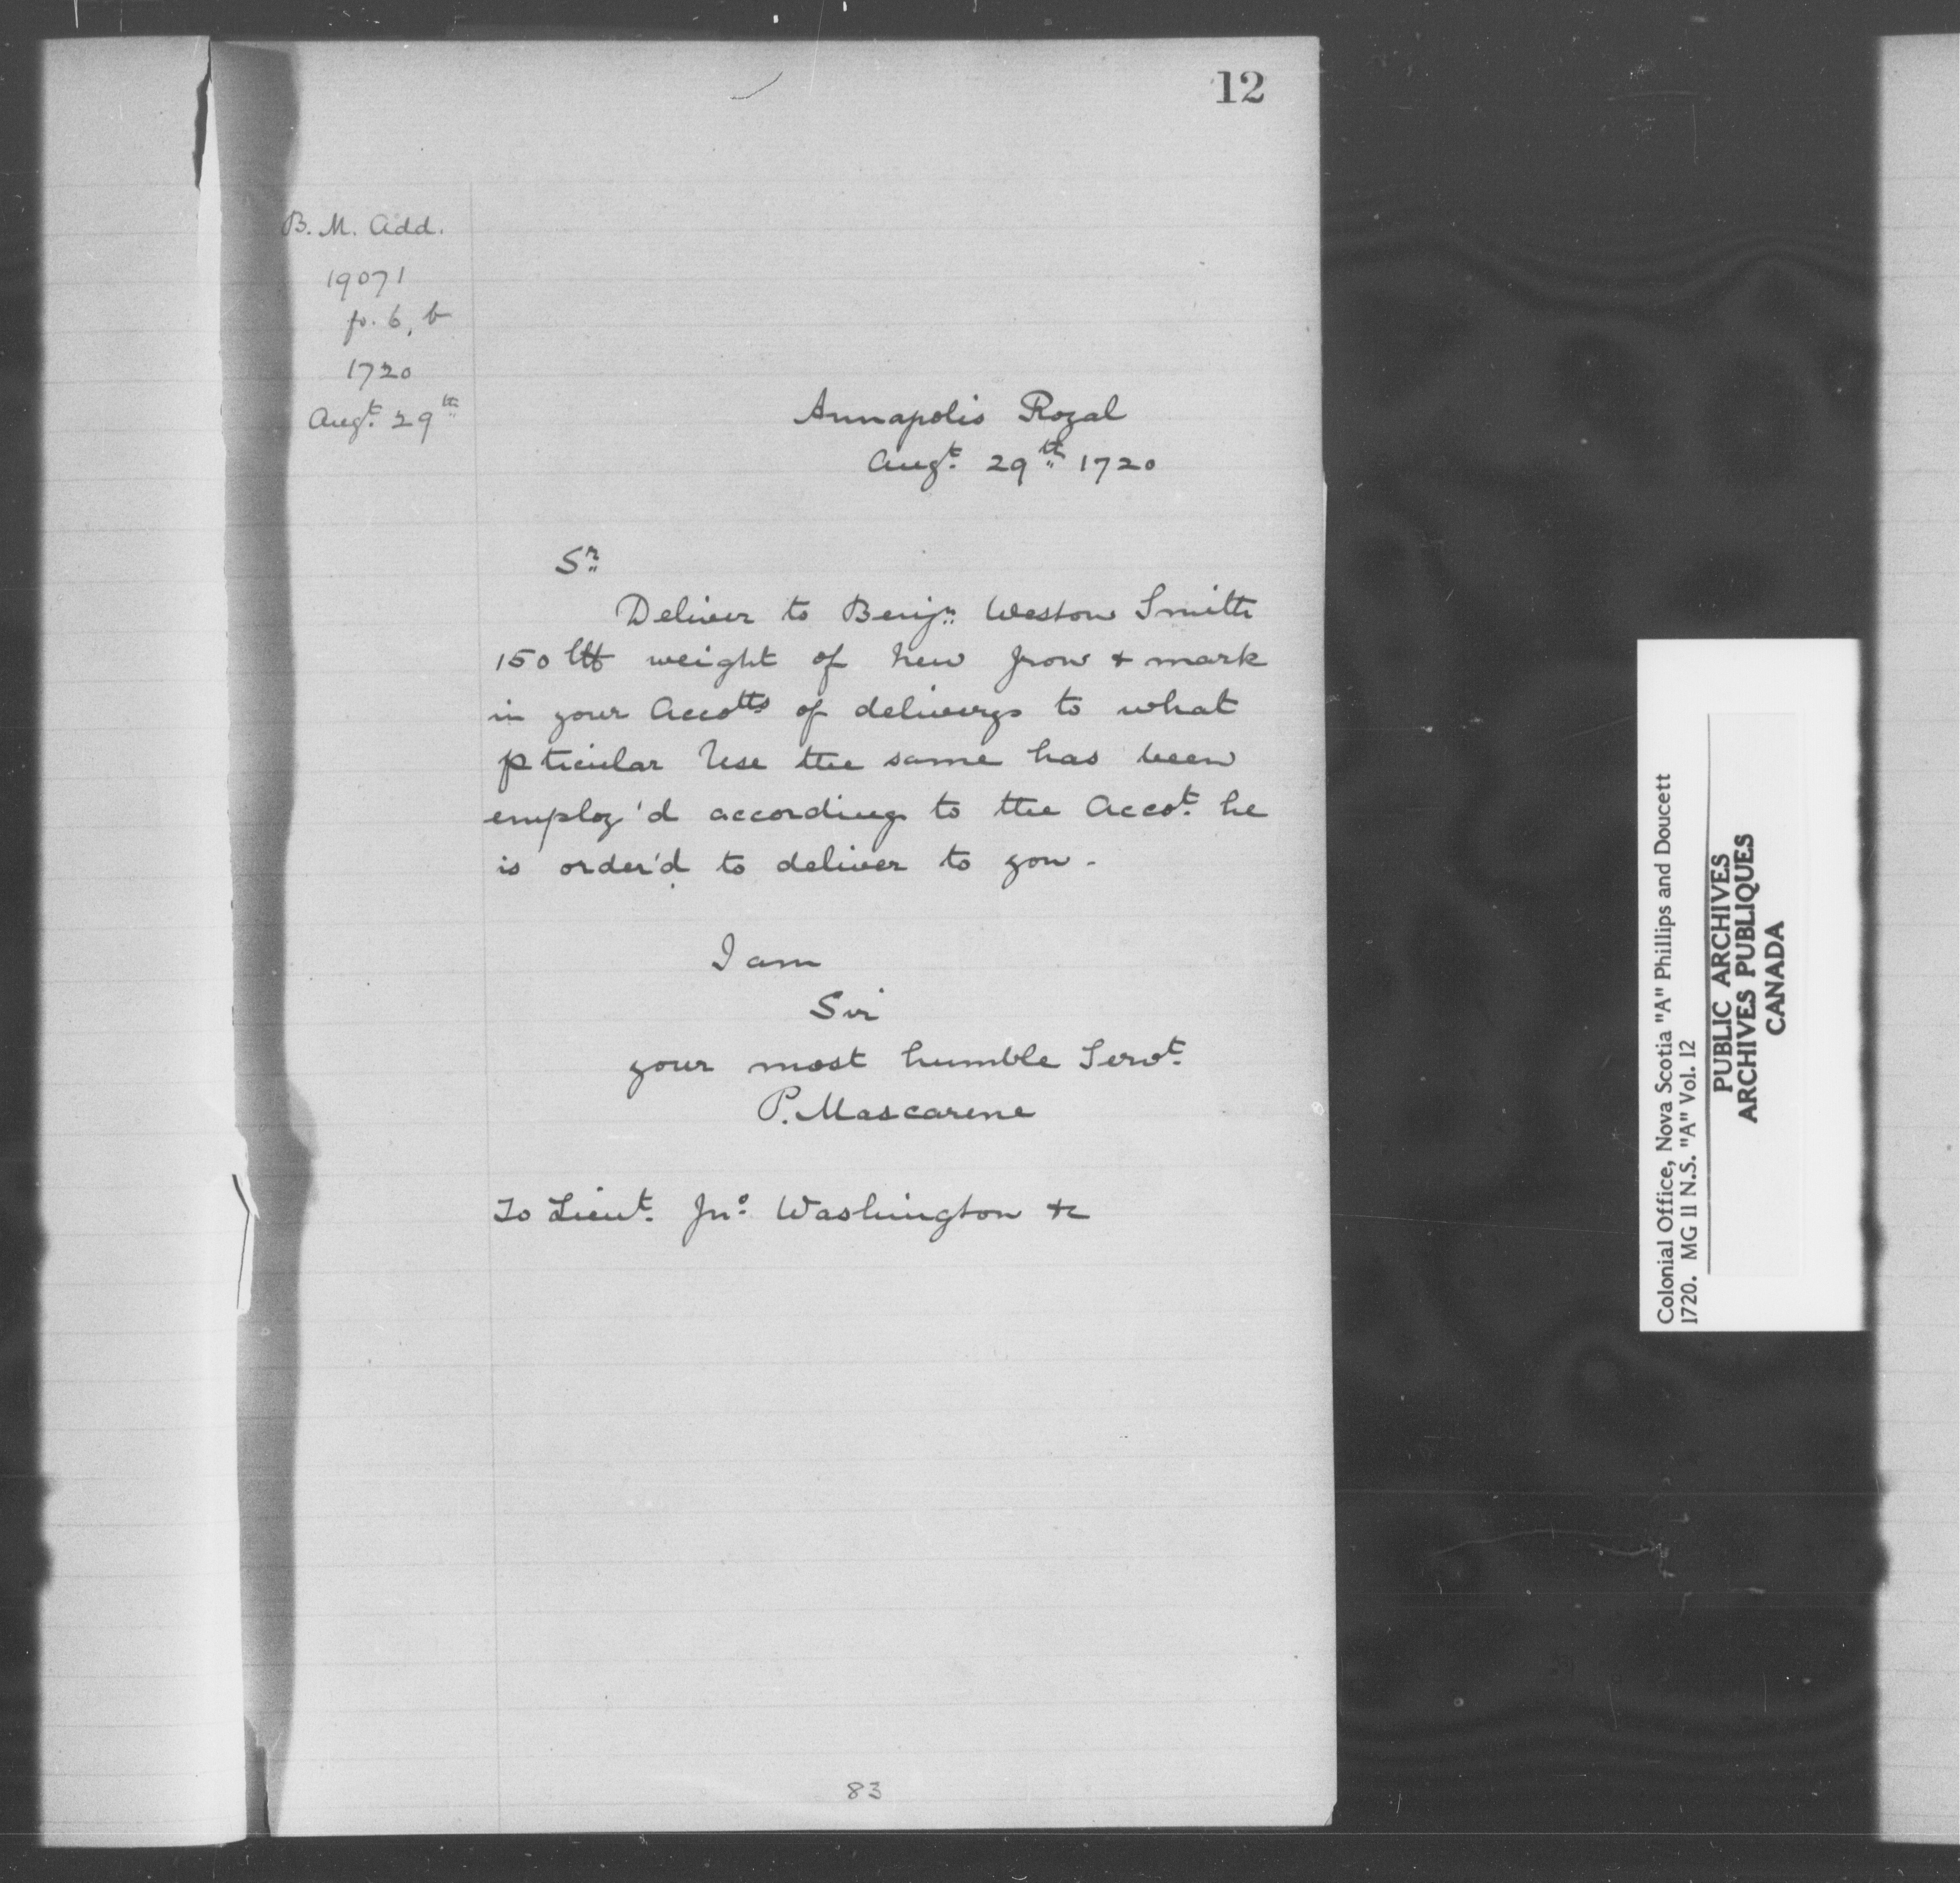 12
B. M. Add.
19071
fo. 6, b
1720
Augt. 29th
Annapolis Royal
Augt. 29th 1720
Sr
Deliver to Benjn. Weston Smith
150 lb weight of New Jron & mark
in your Accotts of deliverys to what
pticular Use the same has been
employ'd according to the Accot. he
is order'd to deliver to you.
I am
Sir
your most humble Servt.
P. Mascarene
To Lieut. Jno. Washington &c
83
Colonial Office, Nova Scotia "A" Phillips and Doucett
1720. MG 11 N.S. "A" Vol. 12
PUBLIC ARCHIVES
ARCHIVES PUBLIQUES
CANADA